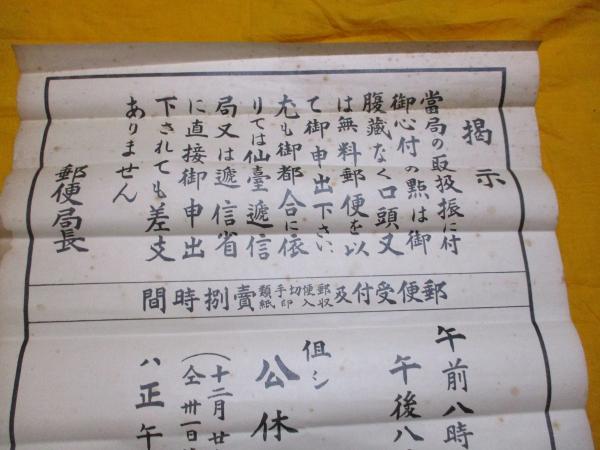 掲示
當局の取扱振に付
御心付の點は御
腹藏なく口頭又
は無料郵便を以
て御申出下さい
尤も御都合に依
りては仙臺遞信
局又は遞信省
に直接御申出
下されても差支
ありません
郵便局長
郵便受付及郵便切手収入印紙類賣捌時間
午前八時
午後八
但シ
公休
(十二月廿
(仝卅一日
ハ正午